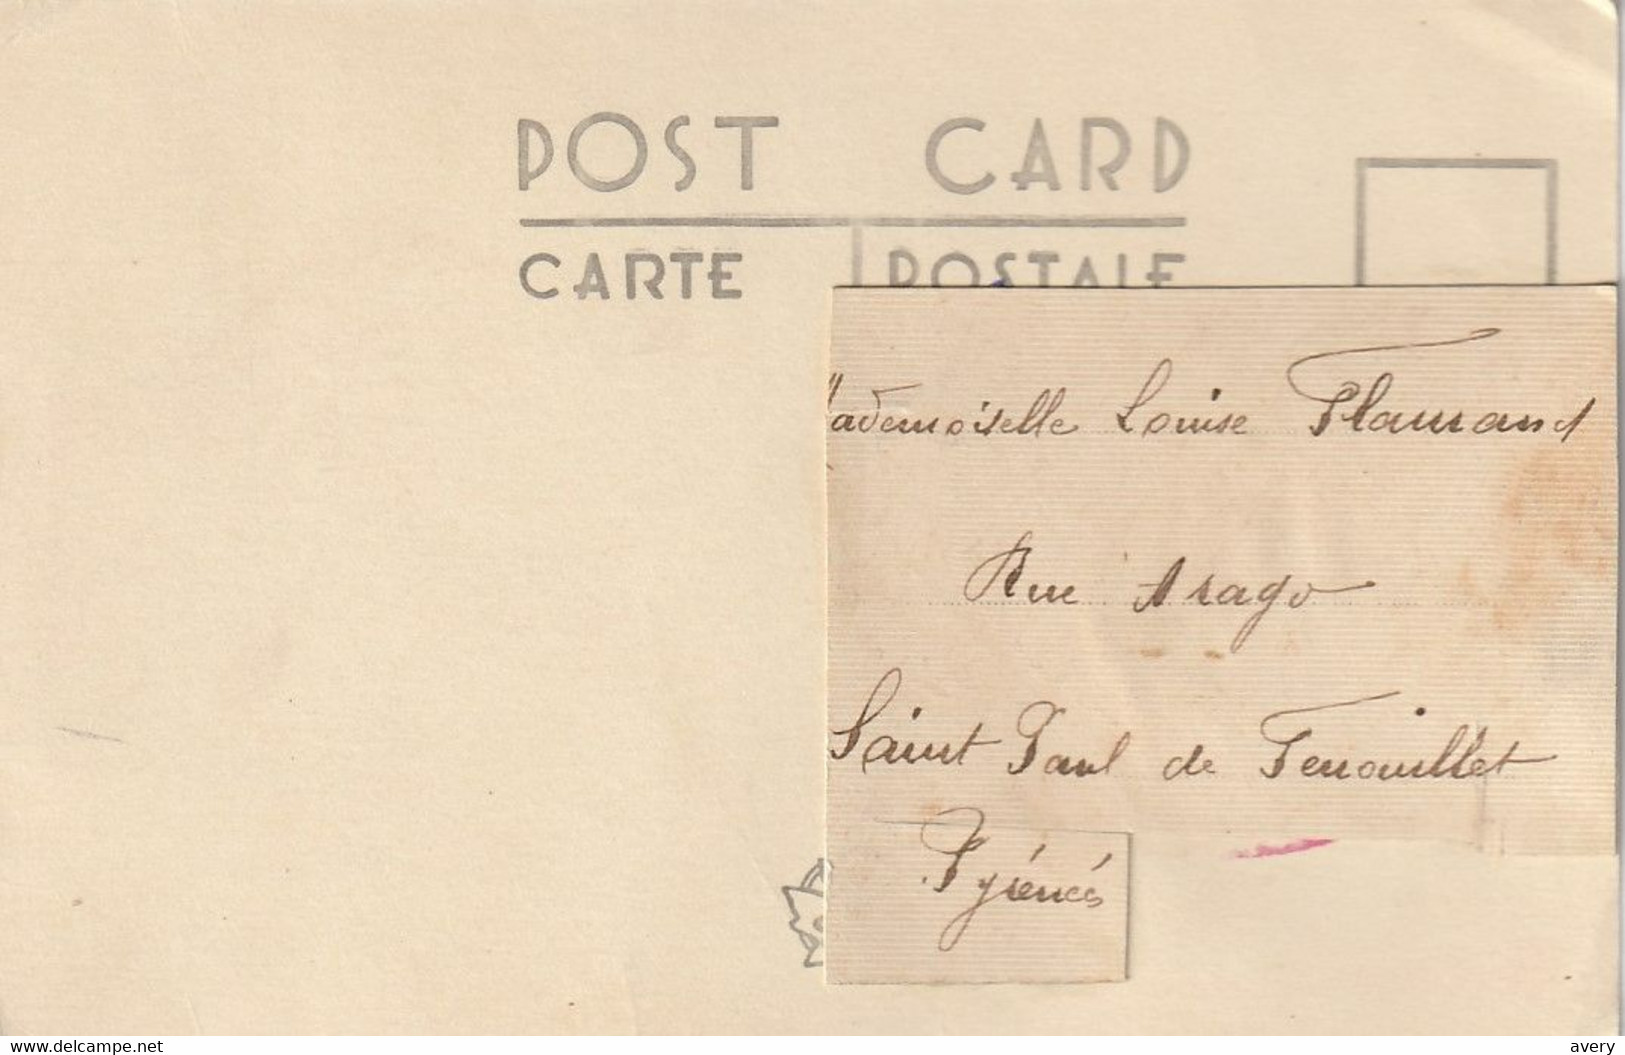 POST CARD
CARTE POSTALE
Mademoiselle Louise Flamand
Rue Arago
Saint Paul de Fenouillet
Pyrénées
www.delcampe.net
avery